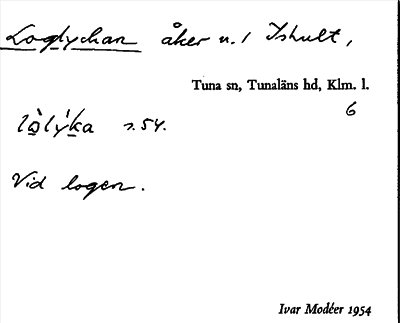 Loglyckan åker u. / Ishult,
Tuna sn, Tunaläns hd, Klm. l.
6
lo̱̊ly̍ḵa s. 54.
Vid logen.
Ivar Modéer 1954